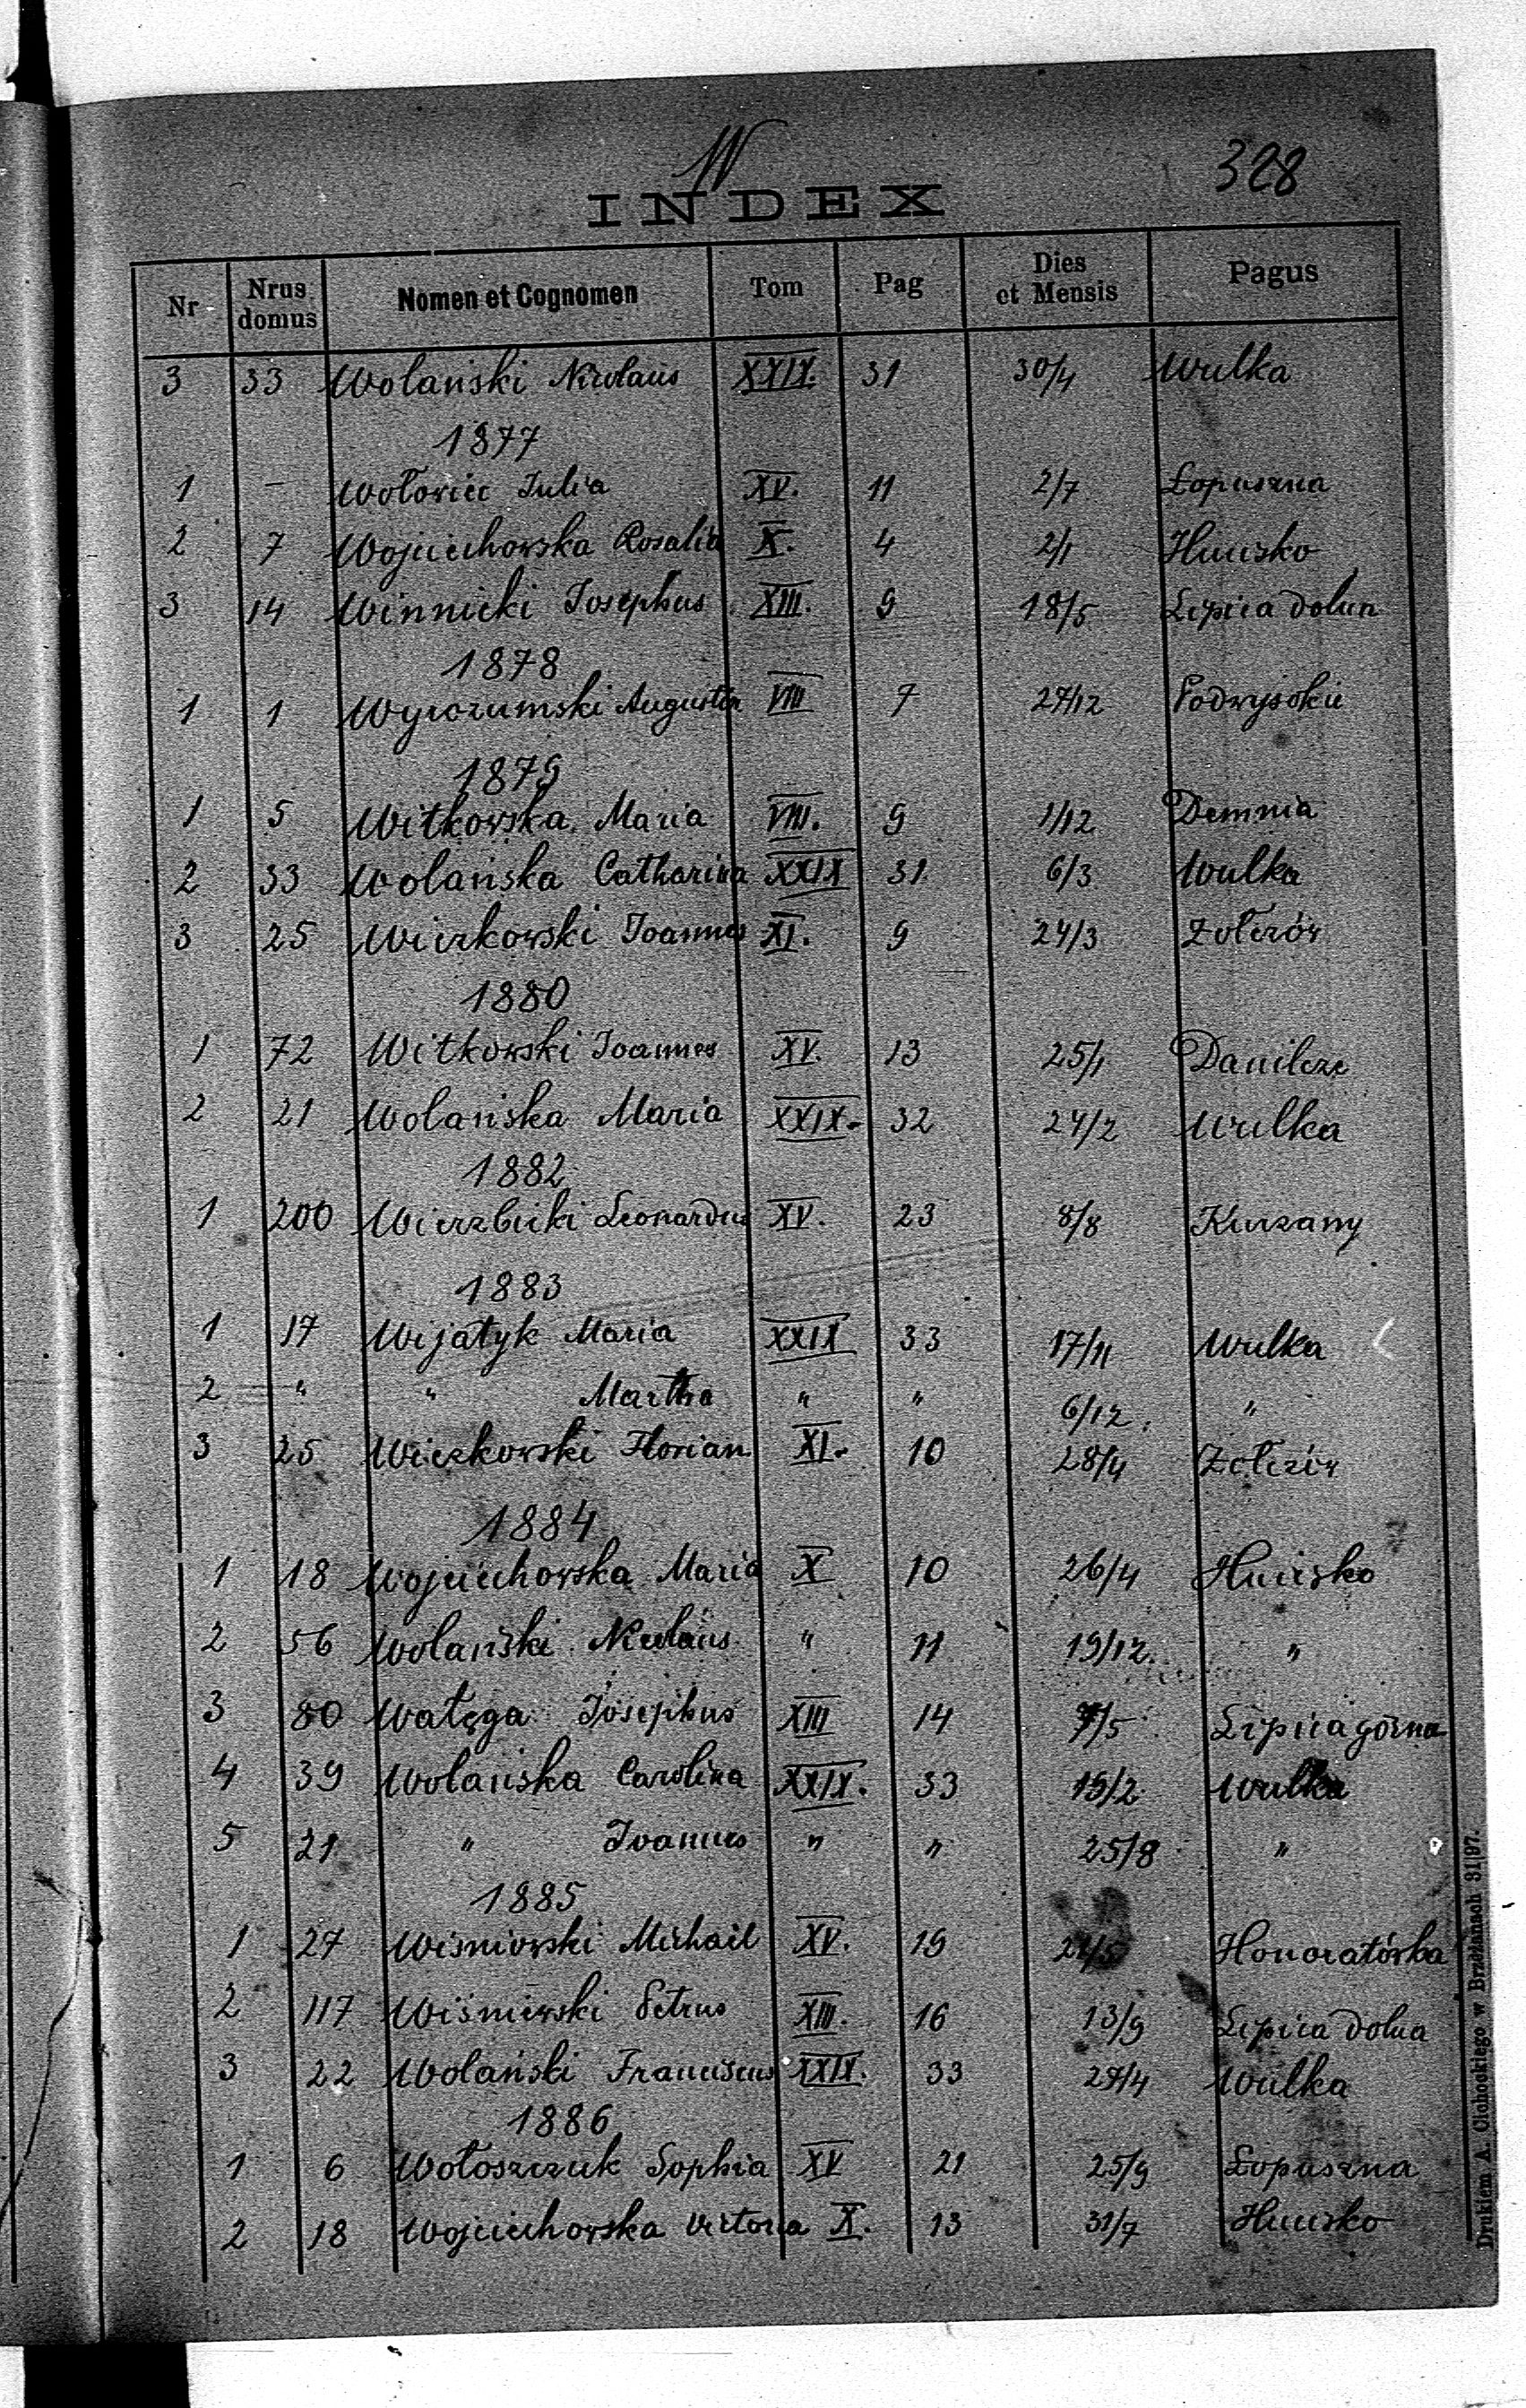 W
328
INDEX
Nr Nrus domus Nomen et Cognomen Tom Pag Dies et Mensis Pagus
3 33 Wolański Nicolaus XXIX. 31 30/4 Wulka
1877
1 – Wołowiec Julia XV. 11 2/7 Łopuszna
2 7 Wojciechowska Rosalia X. 4 2/1 Huicisko
3 14 Winnicki Josephus XIII. 9 18/5 Lipica dolna
1878
1 1 Wyrozumski Augustin VIII 7 27/12 Podwysokie
1879
1 5 Witkowska Maria VIII. 9 1/12 Demnia
2 33 Wolańska Catharina XXIX 31 6/3 Wulka
3 25 Wieczkowski Joannes XI. 9 24/3 Żołczów
1880
1 72 Witkowski Joannes XV. 13 25/1 Danilcze
2 21 Wolańska Maria XXIX. 32 24/2 Wulka
1882
1 200 Wierzbicki Leonardus XV. 23 8/8 Kurzany
1883
1 17 Wijatyk Maria XXIX 33 17/11 Wulka
2 " " Martha " " 6/12. "
3 25 Wieczkowski Florian XI. 10 28/4 Żołczów
1884
1 18 Wojciechowska Maria X 10 26/4 Huicisko
2 56 Wolański Nicolaus " 11 19/12. "
3 80 Watęga Josephus XIII 14 7/5 Lipica górna
4 39 Wolańska Carolina XXIX. 33 15/2 Wulka
5 21 " Joannes " " 25/8 "
1885
1 27 Wiśniowski Michael XV. 19 Honoratówka
2 117 Wiśniewski Petrus XIII. 16 13/9 Lipica dolna
3 22 Wolański Franciscus XXIX. 33 27/4 Wulka
1886
1 6 Wołoszczuk Sophia XV 21 25/9 Łopuszna
2 18 Wojciechowska Victoria X. 13 31/7 Huicisko
Drukiem A. Cichockiego w Brzeżanach 31|97.